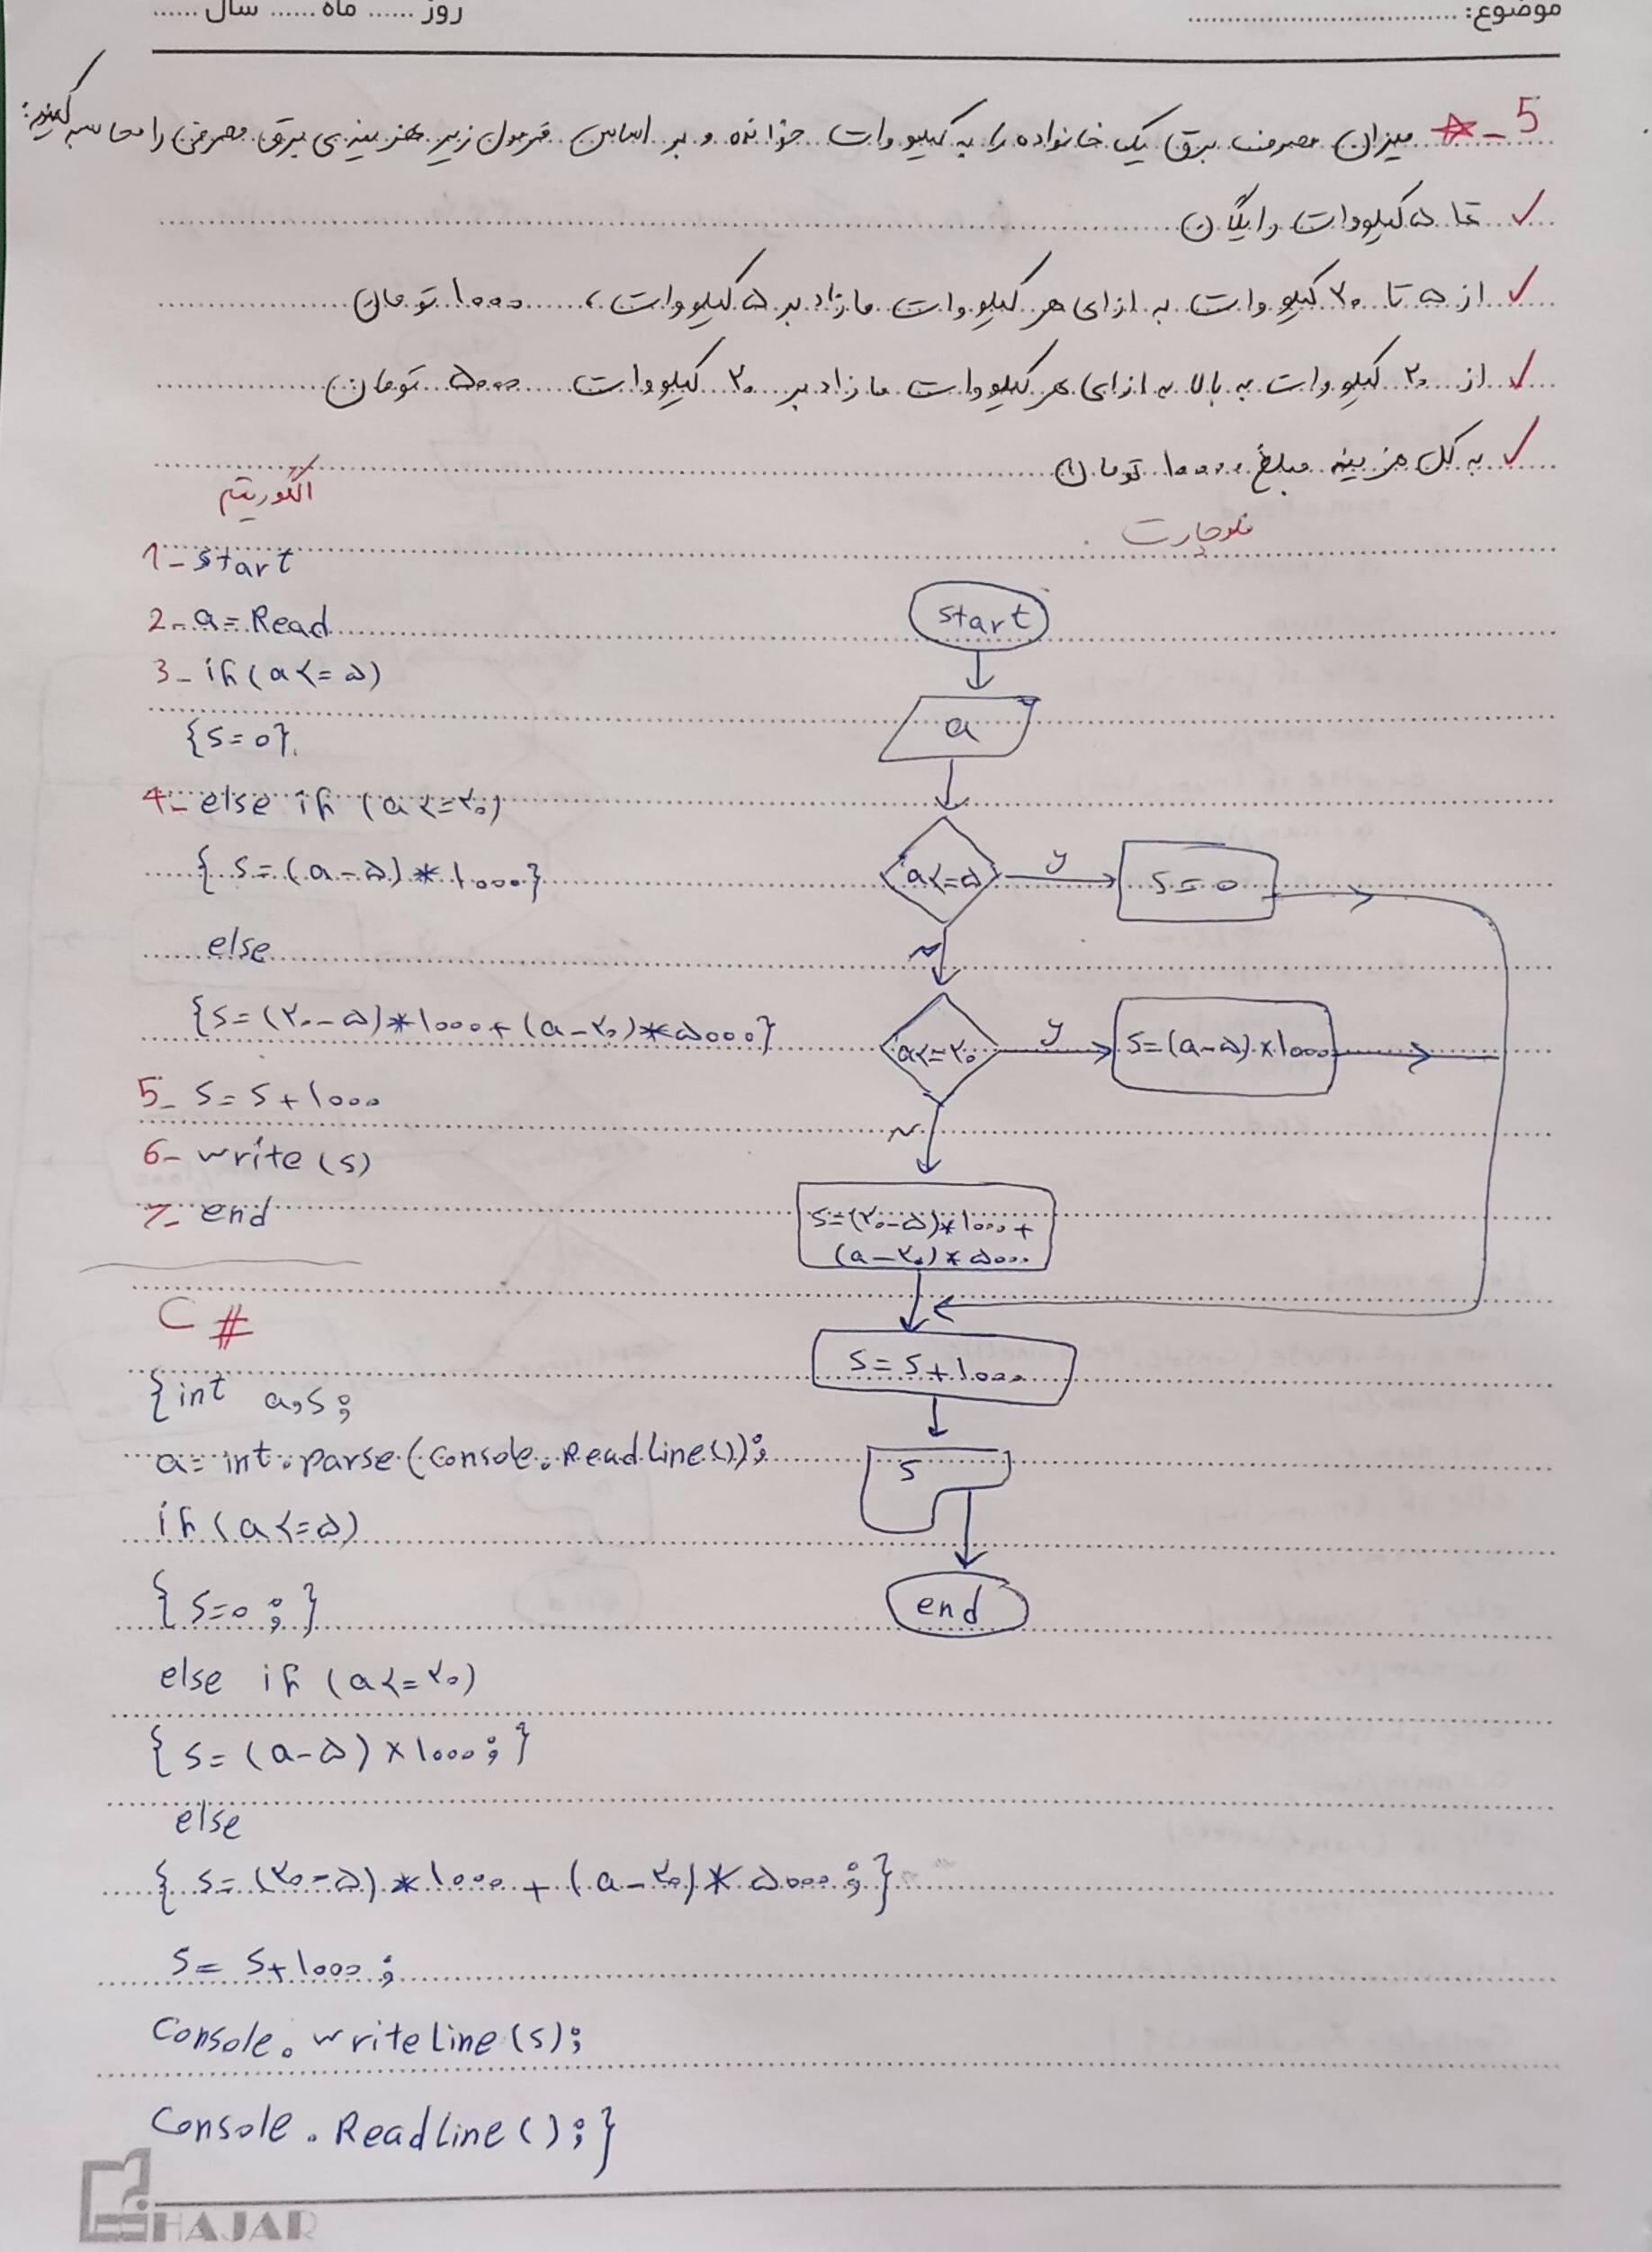 موضوع: روز ...... ماه ...... سال ......
5 - میزان مصرف برق یک خانواده را به کیلووات خوانده و بر اساس فرمول زیر هزینه‌ی برق مصرفی را محاسبه کنید:
✓ تا ۵ کیلووات رایگان
✓ از ۵ تا ۲۰ کیلووات به ازای هر کیلووات مازاد بر ۵ کیلووات، ۱۰۰۰ تومان
✓ از ۲۰ کیلووات به بالا به ازای هر کیلووات مازاد بر ۲۰ کیلووات ۵۰۰۰ تومان
✓ به کل هزینه مبلغ ۱۰۰۰۰ تومان
الگوریتم
1- start
2- a = Read
3- if (a <= ۵)
{s = 0}
4- else if (a <= ۲۰)
{s = (a - ۵) * ۱۰۰۰}
else
{s = (۲۰ - ۵) * ۱۰۰۰ + (a - ۲۰) * ۵۰۰۰}
5- s = s + ۱۰۰۰
6- write (s)
7- end
فلوچارت
start
a
a <= ۵
y
s = 0
N
a <= ۲۰
y
s = (a - ۵) × ۱۰۰۰
N
s = (۲۰ - ۵) * ۱۰۰۰ +
(a - ۲۰) * ۵۰۰۰
s = s + ۱۰۰۰
s
end
C #
{int a,s;
a = int.parse(Console.ReadLine());
if (a <= ۵)
{ s = 0 ; }
else if (a <= ۲۰)
{ s = (a - ۵) × ۱۰۰۰ ; }
else
{ s = (۲۰ - ۵) * ۱۰۰۰ + (a - ۲۰) * ۵۰۰۰ ; }
s = s + ۱۰۰۰ ;
Console.writeLine(s);
Console.ReadLine();}
HAJAR